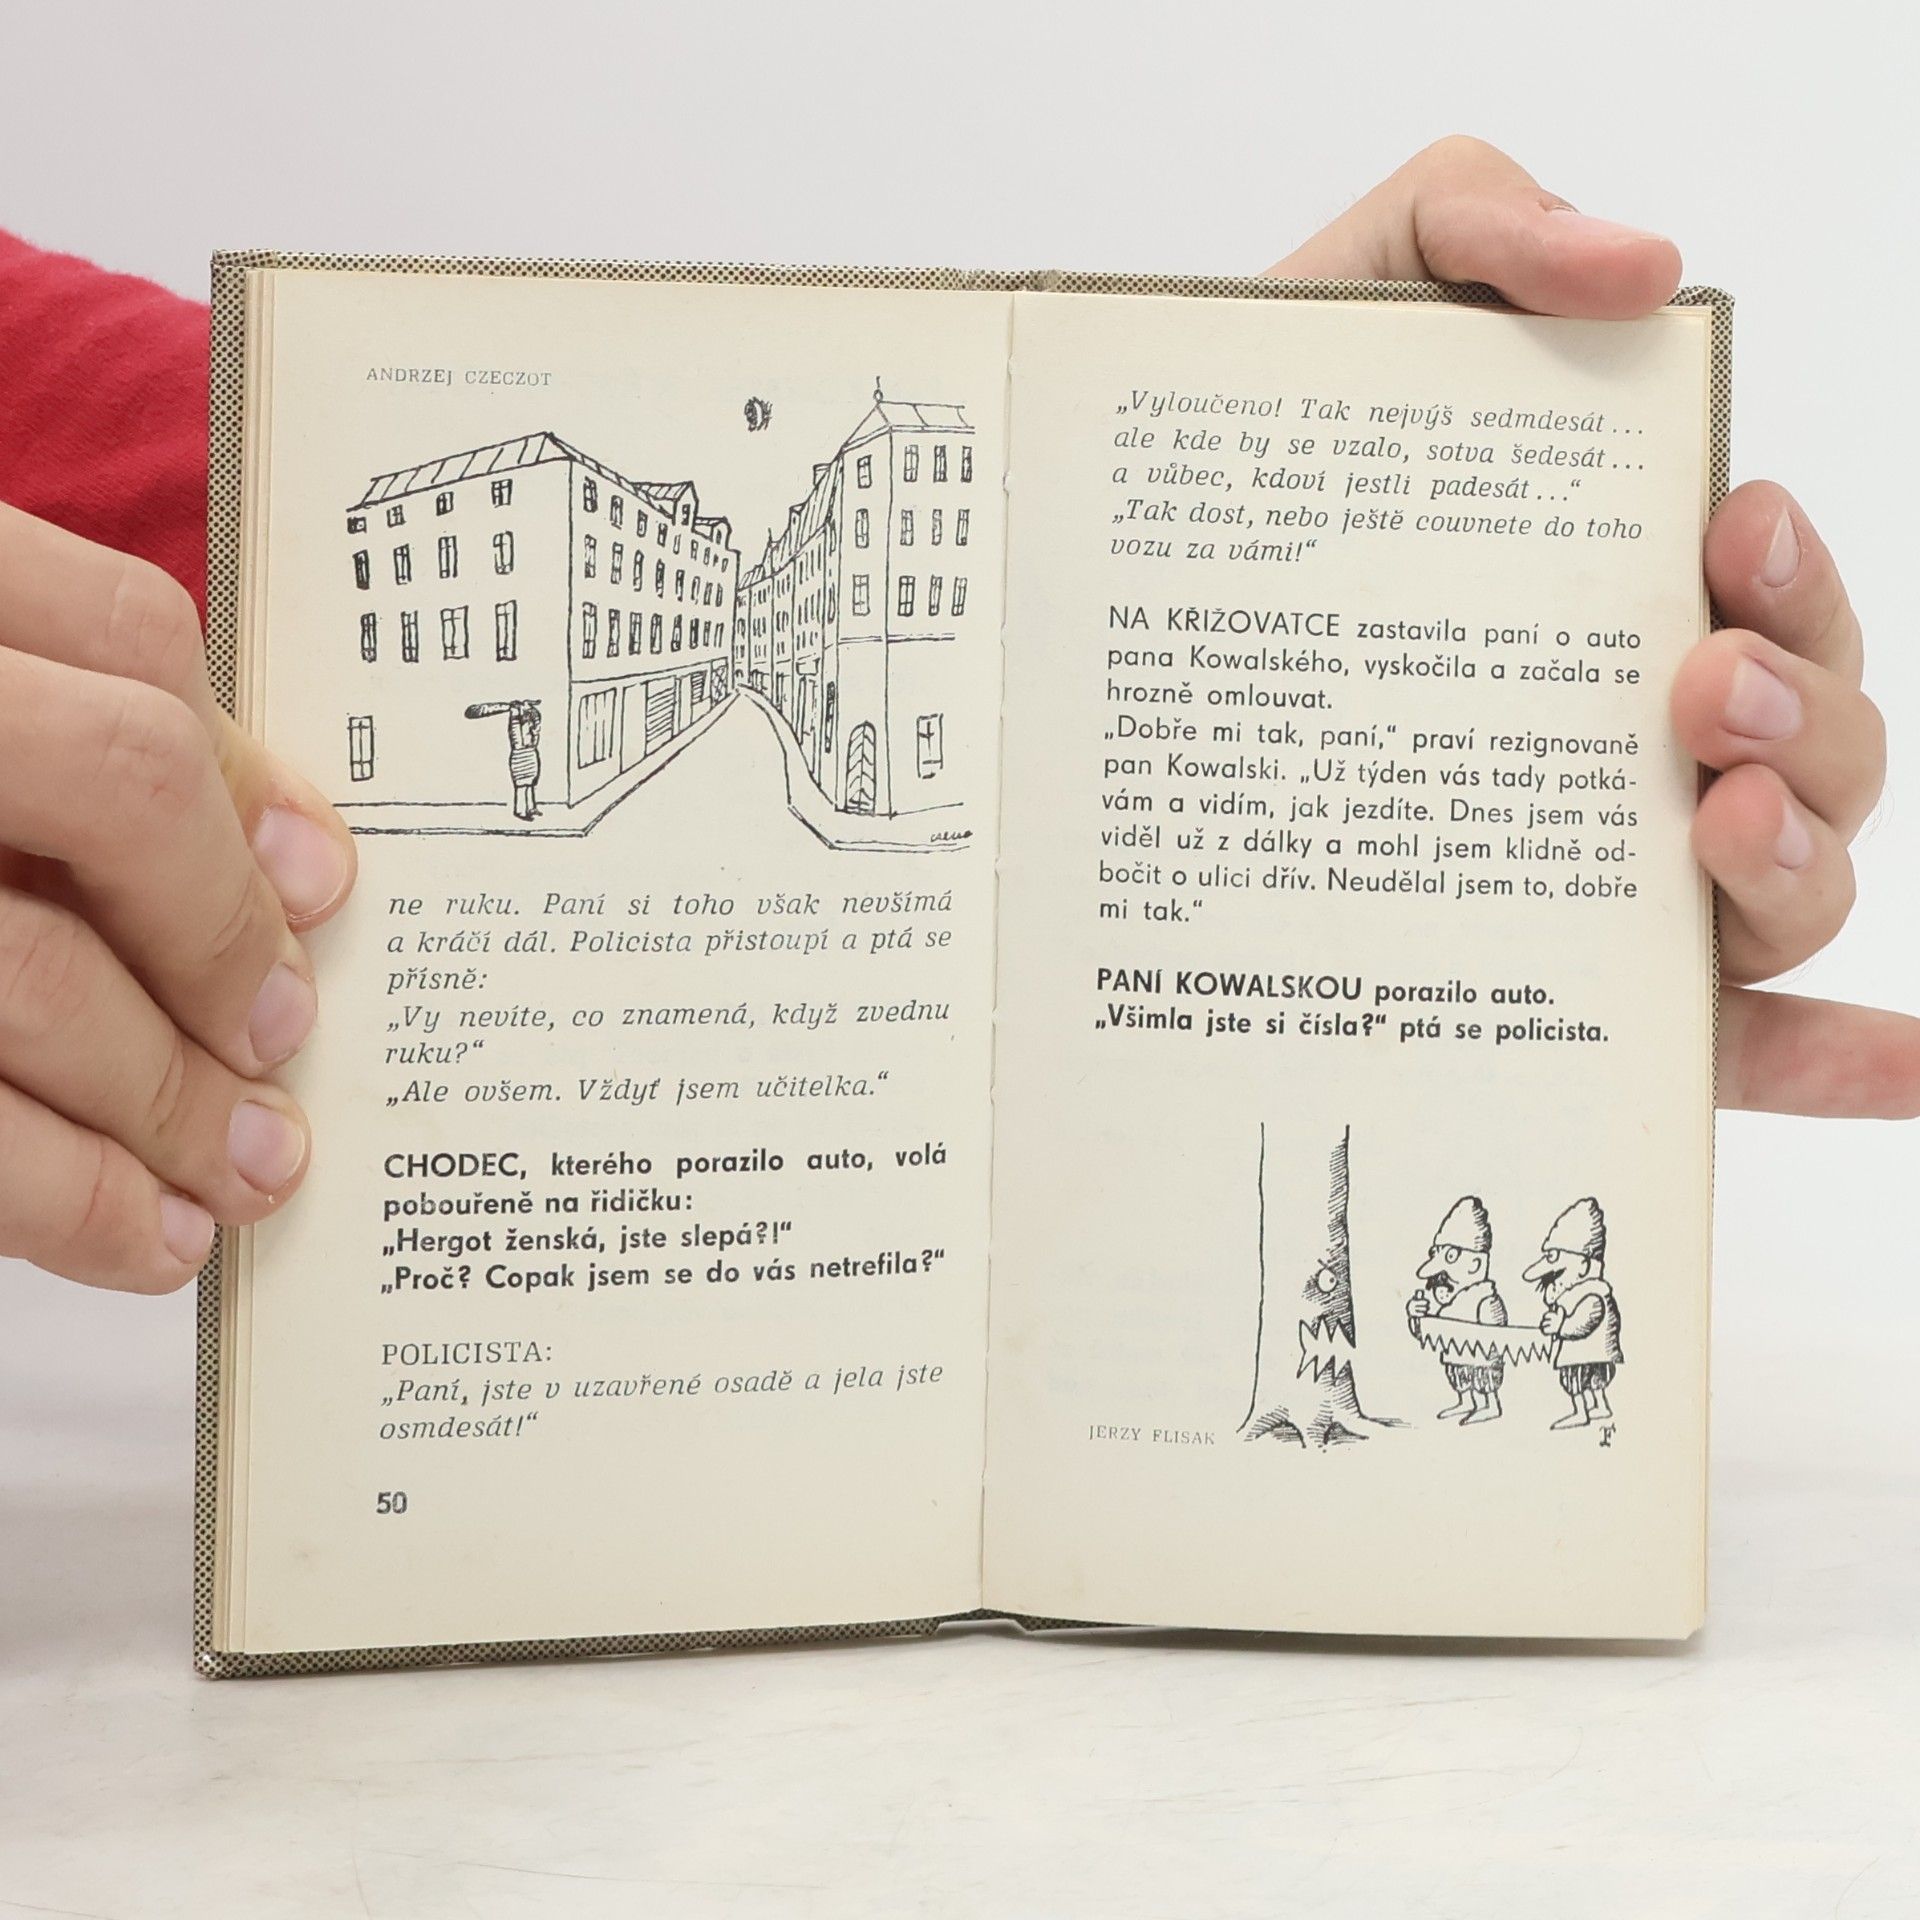 ANDRZEJ CZECZOT
ne ruku. Paní si toho však nevšímá
a kráčí dál. Policista přistoupí a ptá se
přísně:
„Vy nevíte, co znamená, když zvednu
ruku?“
„Ale ovšem. Vždyť jsem učitelka.“
CHODEC, kterého porazilo auto, volá
pobouřeně na řidičku:
„Hergot ženská, jste slepá?!“
„Proč? Copak jsem se do vás netrefila?“
POLICISTA:
„Paní, jste v uzavřené osadě a jela jste
osmdesát!“
50
„Vyloučeno! Tak nejvýš sedmdesát...
ale kde by se vzalo, sotva šedesát...
a vůbec, kdoví jestli padesát...“
„Tak dost, nebo ještě couvnete do toho
vozu za vámi!“
NA KŘIŽOVATCE zastavila paní o auto
pana Kowalského, vyskočila a začala se
hrozně omlouvat.
„Dobře mi tak, paní,“ praví rezignovaně
pan Kowalski. „Už týden vás tady potká-
vám a vidím, jak jezdíte. Dnes jsem vás
viděl už z dálky a mohl jsem klidně od-
bočit o ulici dřív. Neudělal jsem to, dobře
mi tak.“
PANÍ KOWALSKOU porazilo auto.
„Všimla jste si čísla?“ ptá se policista.
JERZY FLISAK